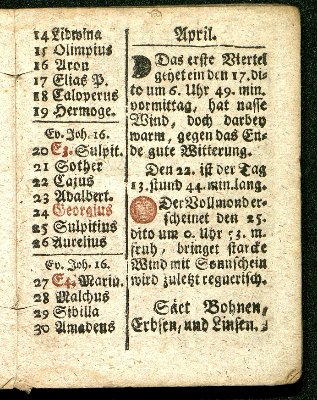 14 Lidwina
15 Olimpius
16 Aron
17 Elias P.
18 Caloperus
19 Hermoge.
Ev. Joh. 16.
20 E3. Sulpit.
21 Sother
22 Cajus
23 Adalbert.
24 Georgius
25 Sulpitius
26 Aurelius
Ev. Joh. 16.
27 E4. Mariu.
28 Malchus
29 Sibilla
30 Amadeus
April.
Das erste Viertel
gehet ein den 17. di-
to um 6. Uhr 49. min.
vormittag, hat nasse
Wind, doch darbey
warm, gegen das En-
de gute Witterung.
Den 22. ist der Tag
13. stund 44. min. lang.
Der Vollmond er-
scheinet den 25.
dito um 0. Uhr 53. m.
fruh, bringet starcke
Wind mit Sonnschein
wird zuletzt regnerisch.
Säet Bohnen,
Erbsen, und Linsen.